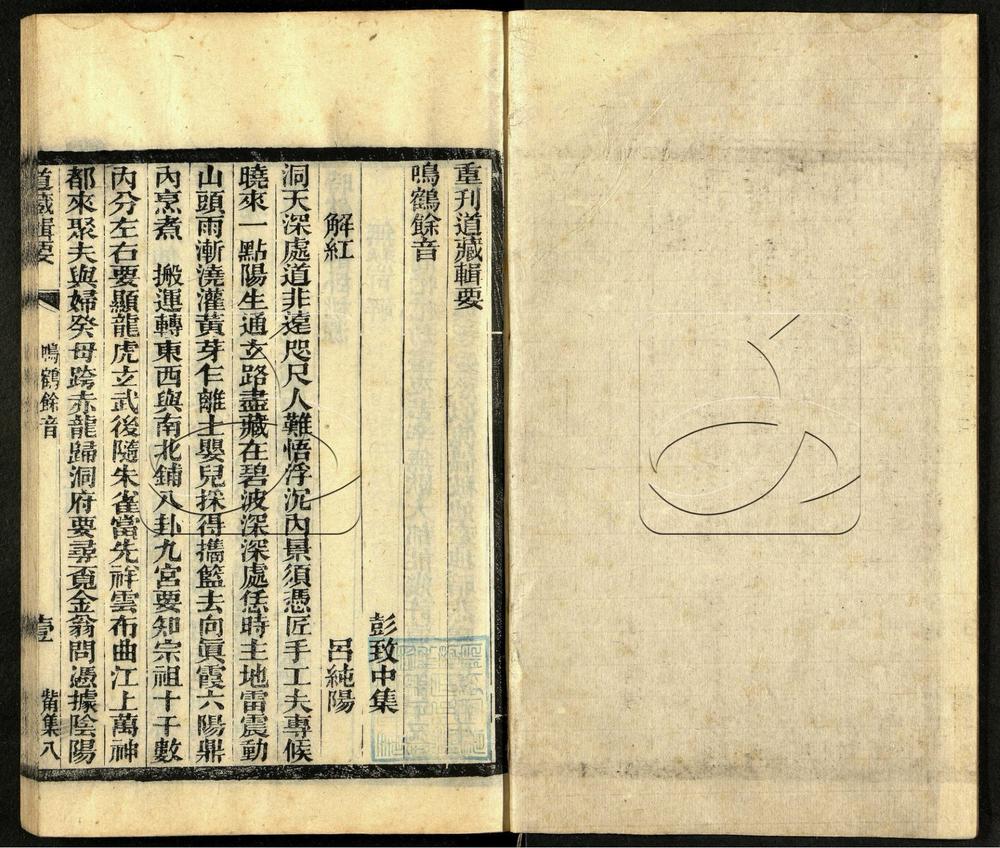 重刊道藏輯要
鳴鶴餘音
彭致中集
解紅　呂純陽
洞天深處道非遠咫尺人難悟浮沉內景須憑匠手工夫專候
曉來一點陽生通玄路盡藏在碧波深深處恁時主地雷震動
山頭雨漸澆灌黃芽乍離土嬰兒採得擕籃去向眞霞六陽鼎
內烹煮　搬運轉東西與南北鋪八卦九宮要知宗祖十干數
內分左右要顯龍虎玄武後隨朱雀當先祥雲布曲江上萬神
都來聚夫與婦癸母跨赤龍歸洞府要尋覔金翁問憑據陰陽
道藏輯要　鳴鶴餘音　壹　觜集八